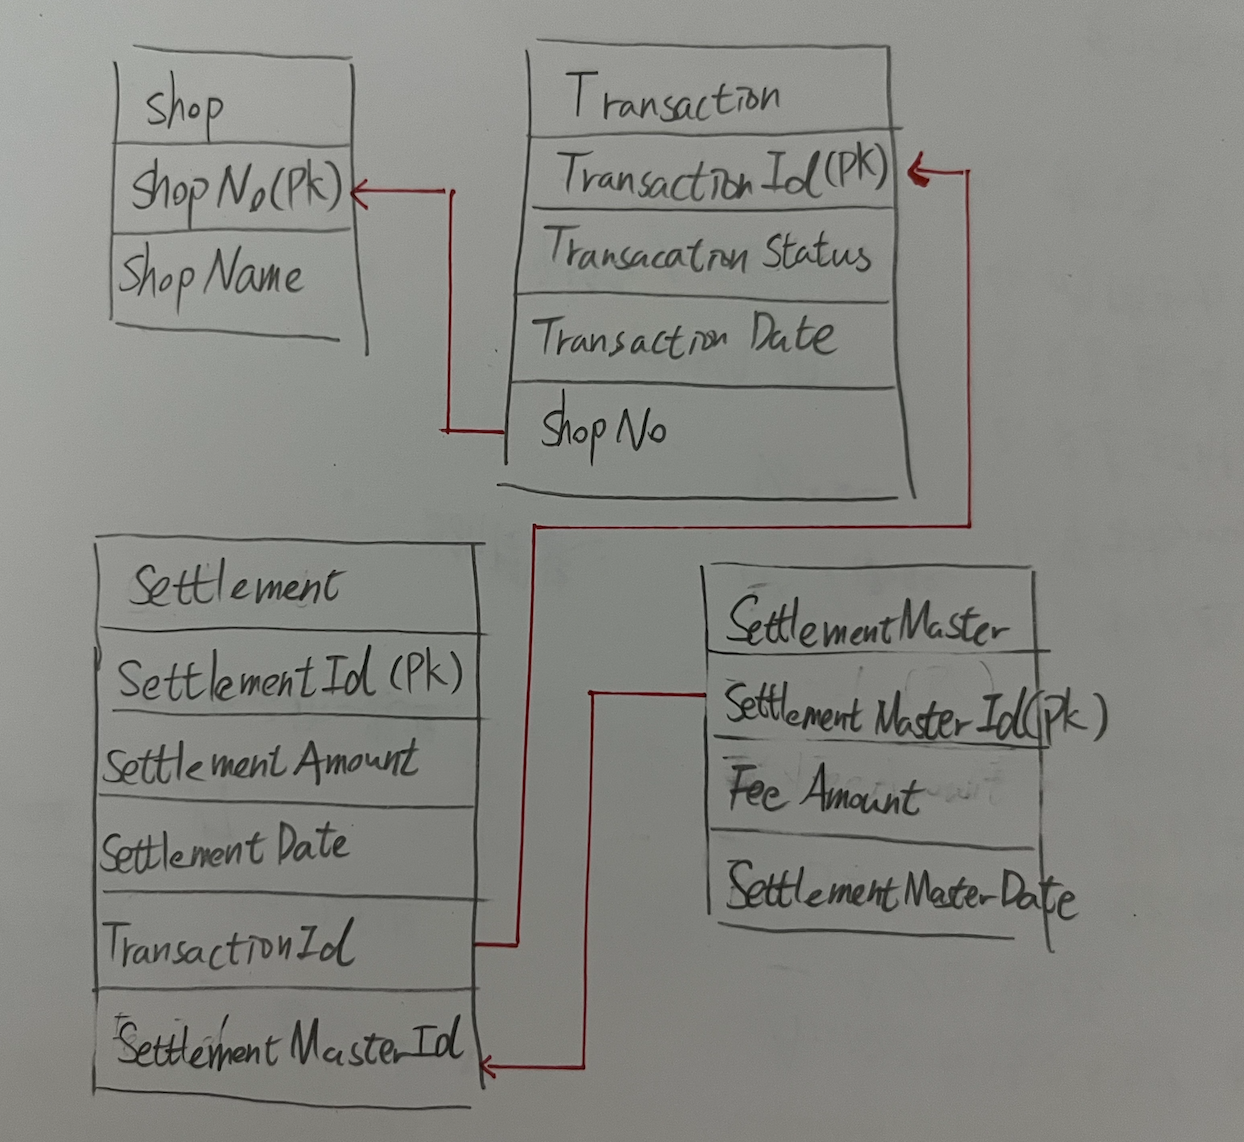 Shop
ShopNo(Pk)
ShopName
Transaction
TransactionId(Pk)
Transacation Status
Transaction Date
ShopNo
Settlement
SettlementId (Pk)
Settlement Amount
Settlement Date
TransactionId
Settlement MasterId
SettlementMaster
Settlement Master Id(Pk)
Fee Amount
Settlement Master Date